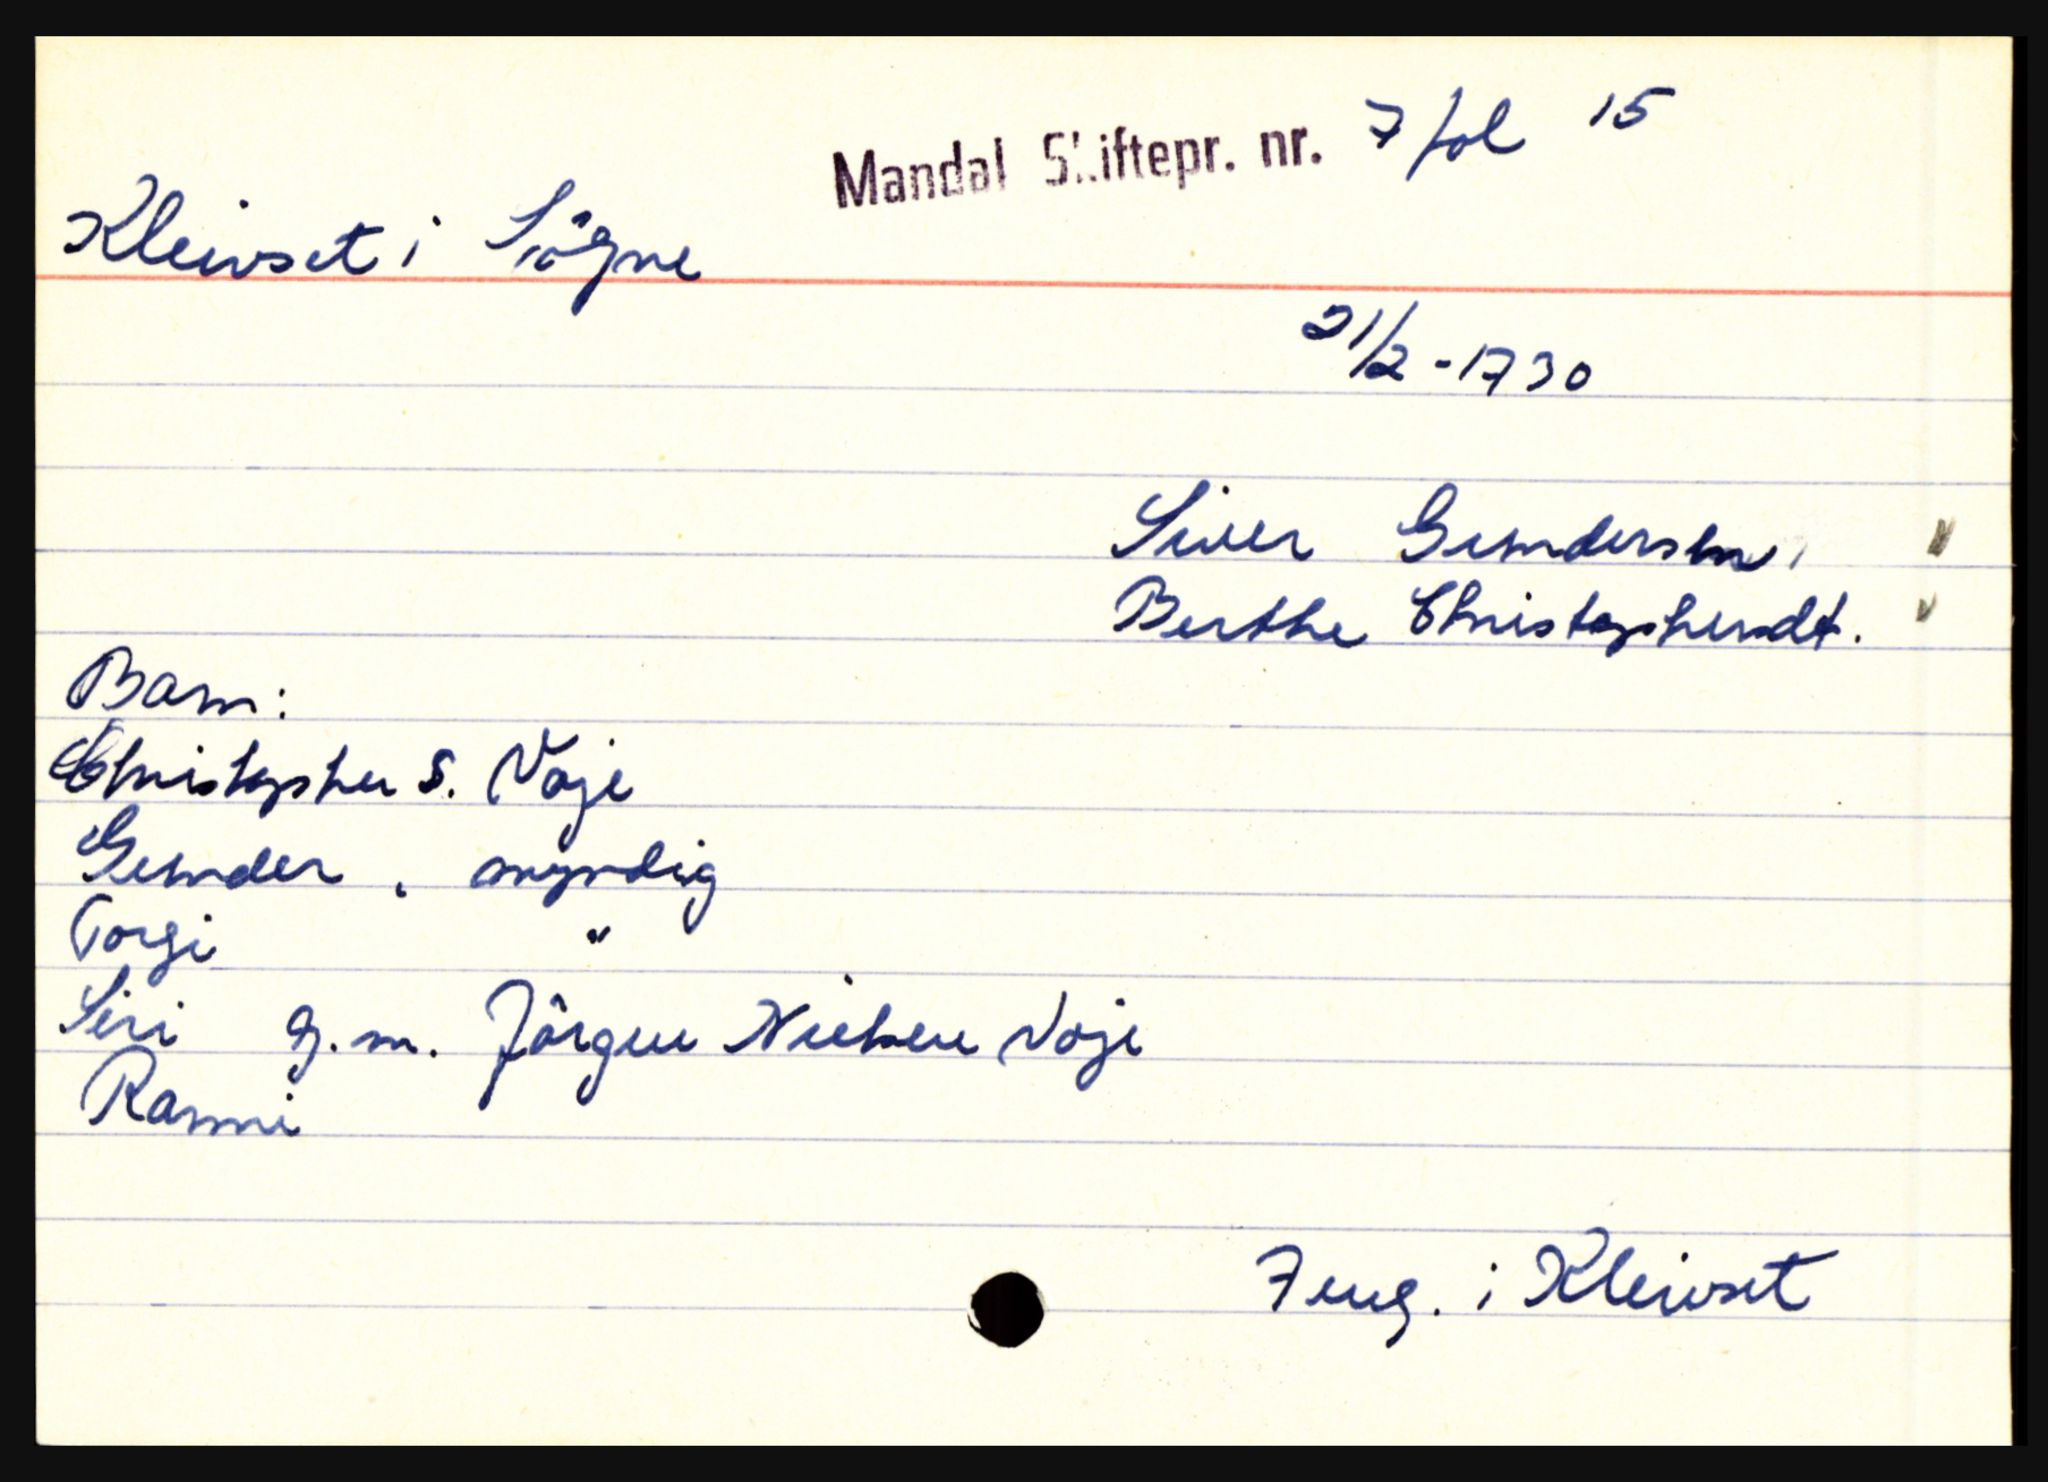 Mandal Skiftepr. nr. 7 fol 15
Kleivset i Søgne
21/2-1730
Siver Gundersen,
Berthe Christophersdt.
Barn:
Christopher S. Voje
Gunder, myndig
Torgi "
Siri g.m. Jörgen Nielsen Voje
Ranni
Jeug. i Kleivset